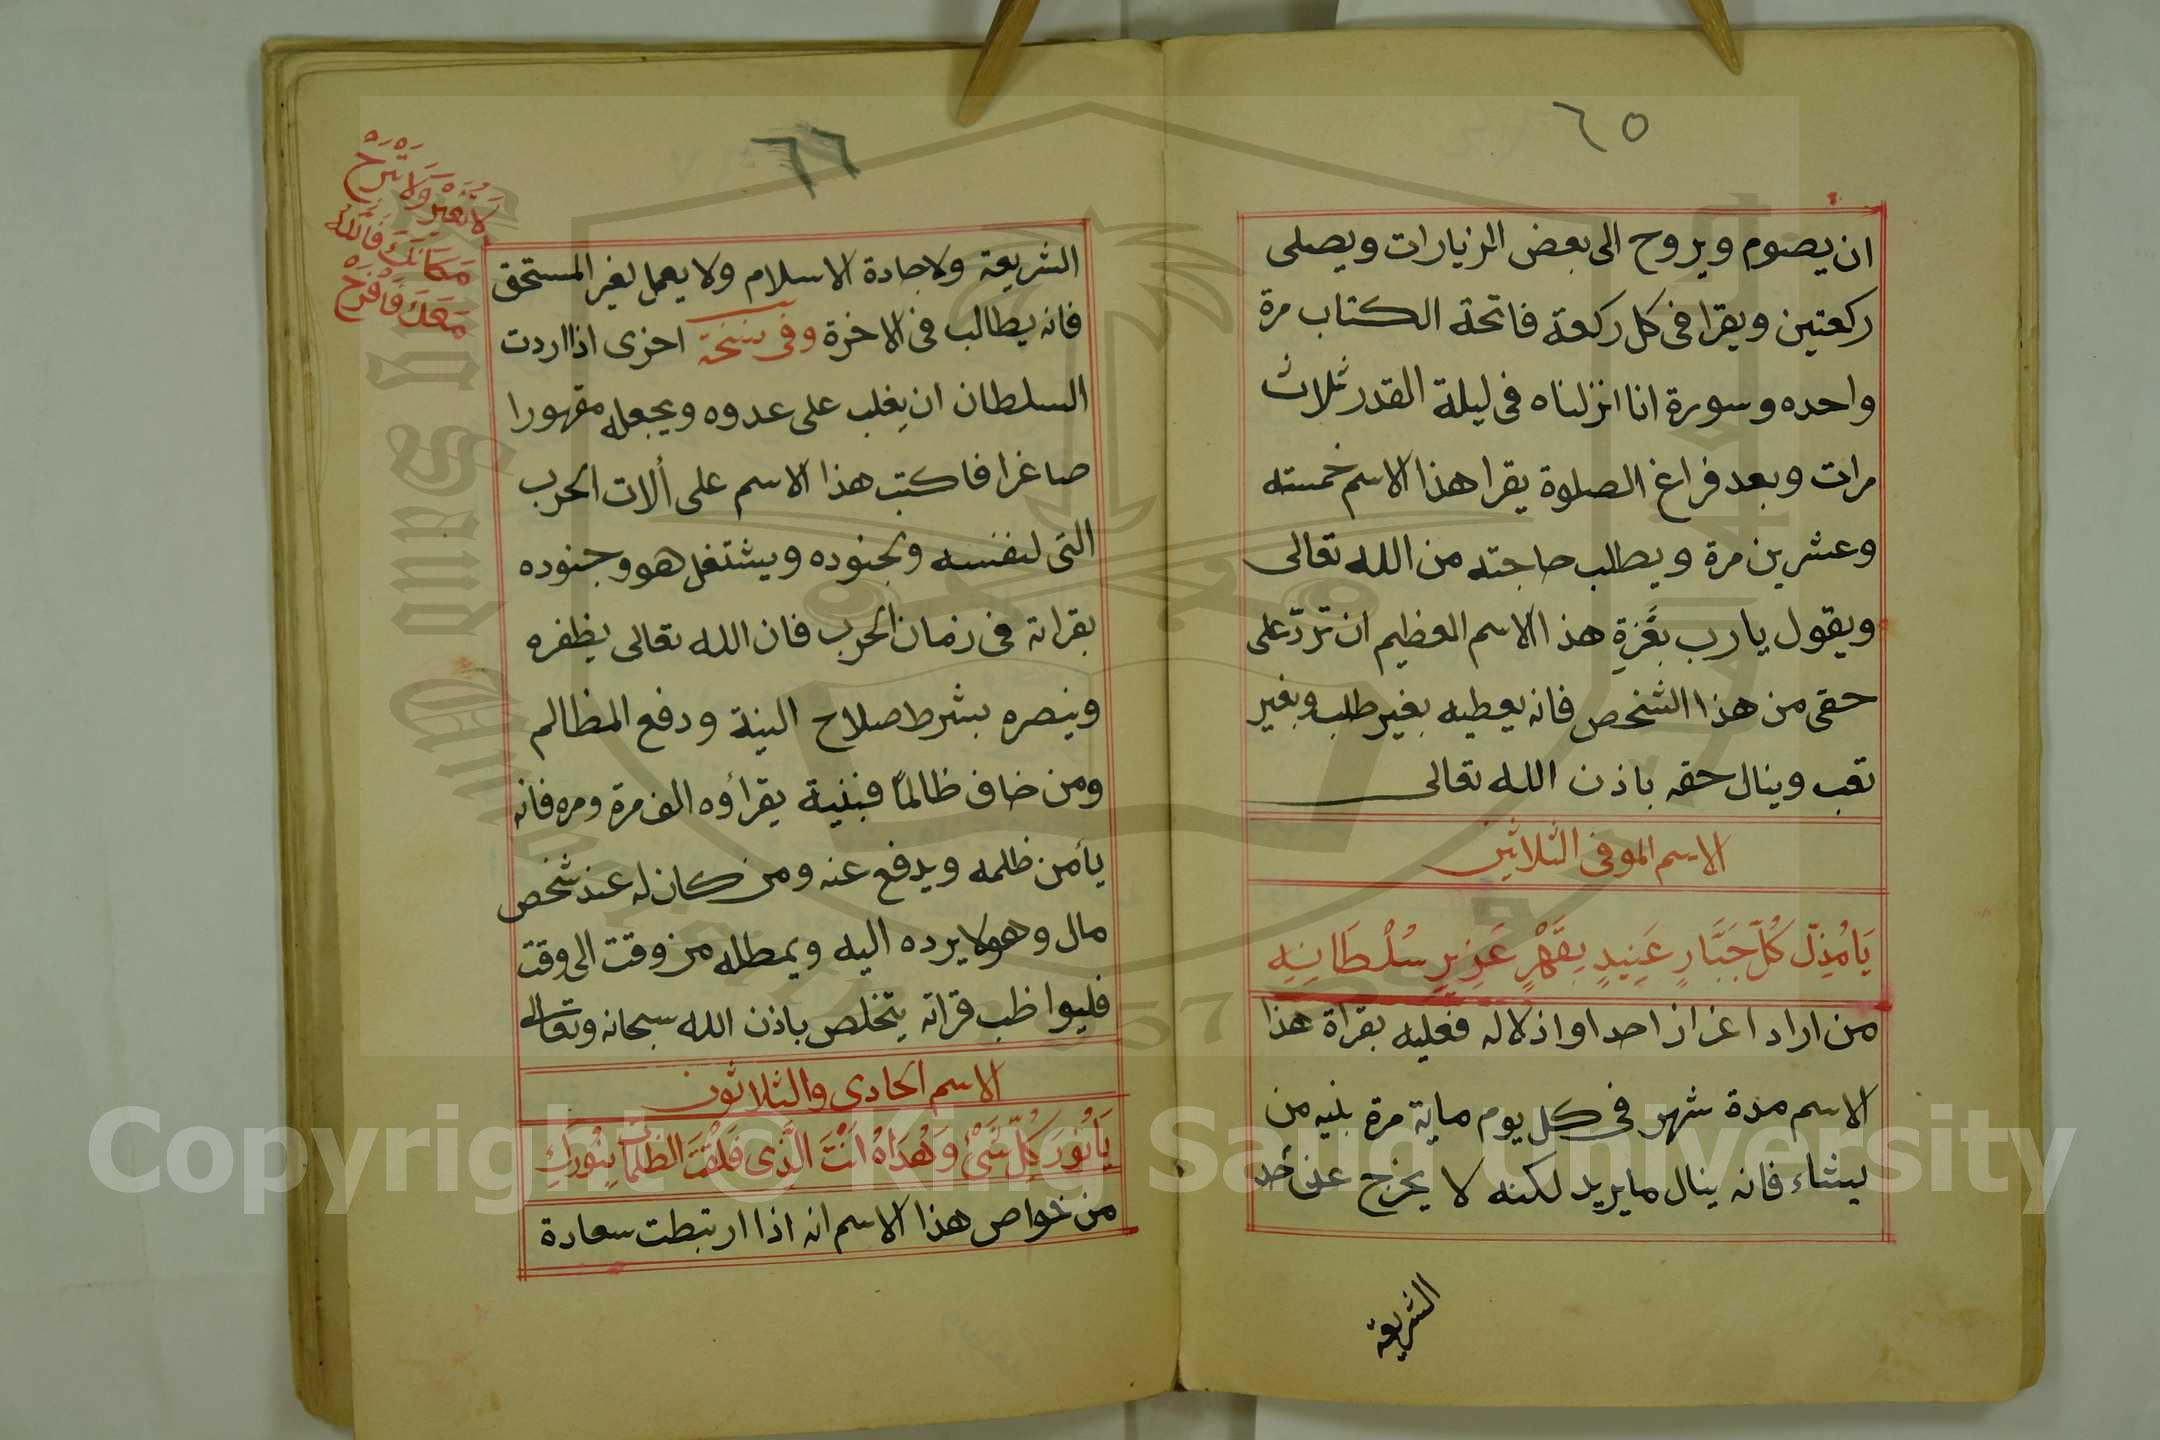 ٦٥
ان يصوم ويروح الى بعض الزيارات ويصلى
ركعتين ويقرا فى كل ركعة فاتحة الكتاب مرة
واحده وسورة انا انزلناه فى ليلة القدر ثلاث
مرات وبعد فراغ الصلوة يقرا هذا الاسم خمسته
وعشرين مرة ويطلب حاجته من الله تعالى
ويقول يا رب بعَزةِ هذا الاسم العظيم ان تردّ على
حقى من هذا الشخص فانه يعطيه بغير طلب وبغير
تعب وينال حقه باذن الله تعالى
الاسم الموفى الثلاثين
يَا مُذِلّ كُلّ جَبَّارٍ عَنِيدٍ بِقَهْرِ عَزِيزِ سُلْطَانِهِ
من اراد اعزاز احد او اذلاله فعليه بقراة هذا
الاسم مدة شهر فى كل يوم ماية مرة بنيه من
يشاء فانه ينال ما يريد لكنه لا يخرج عن حد
الشريعة
٦٦
لَا تُغَيِّرْ وَلَا تَبْرَحْ
مَكَانَكَ فَاللّهُ
مَعَكَ فَافْرَحْ
الشريعة ولا جادة الاسلام ولا يعمل لغير المستحق
فانه يطالب فى الاخرة وفى نسخة اخرى اذا اردت
السلطان ان يغلب على عدوه ويجعله مقهورا
صاغرا فاكتب هذا الاسم على ألات الحرب
التى لنفسه ولجنوده ويشتغل هو وجنوده
بقراته فى زمان الحرب فان الله تعالى يظفره
وينصره بشرط صلاح النية ودفع المظالم
ومن خاف ظالمًا فبنية يقرأوه الف مرة ومره فانه
يأمن ظلمه ويدفع عنه ومن كان له عند شخص
مال وهو لا يرده اليه ويمطله من وقت الى وقت
فليواظب قراته يتخلص باذن الله سبحانه وتعالى
الاسم الحادى والثلاثون
يَا نُورَ كُلّ شَىْءٍ وَهُدَاهُ اَنْتَ الَّذِى فَلَقْتَ الظلمات بِنُورِكَ
من خواص هذا الاسم انه اذا ارتبطت سعادة
Copyright © King Saud University